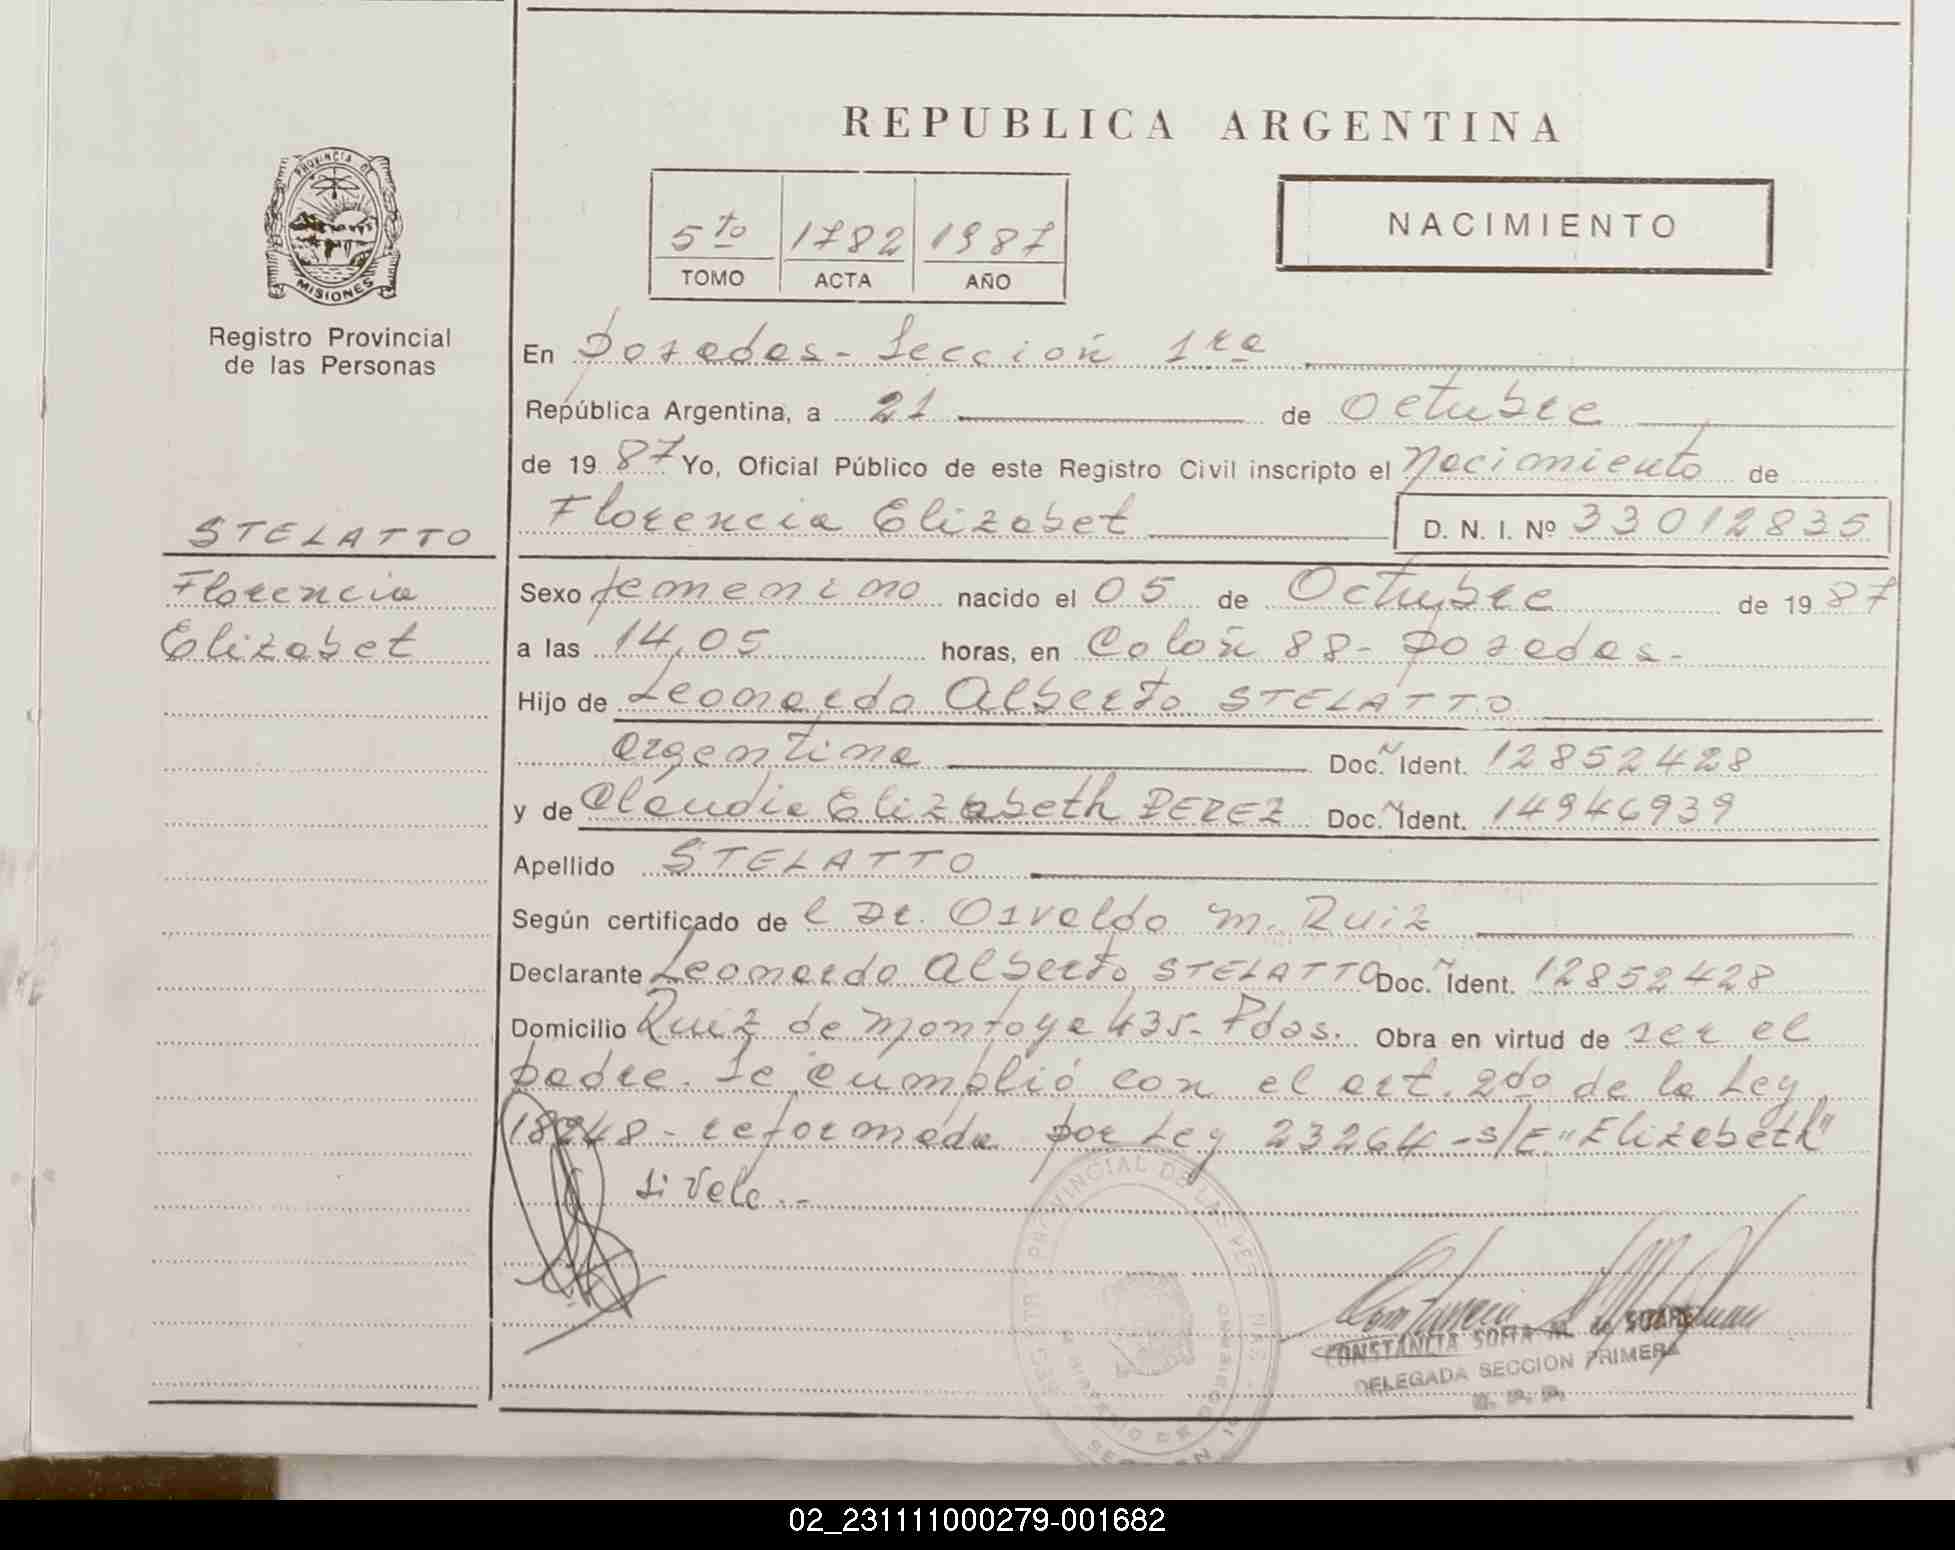 REPUBLICA ARGENTINA
PROVINCIA DE
MISIONES
Registro Provincial
de las Personas
5to 1782 1987
TOMO ACTA AÑO
NACIMIENTO
En Posadas - Sección 1ra
República Argentina, a 21 de Octubre
de 1987 Yo, Oficial Público de este Registro Civil inscripto el Nacimiento de
Florencia Elizabet D. N. I. Nº 33012835
STELATTO
Florencia
Elizabet
Sexo femenino nacido el 05 de Octubre de 1987
a las 14,05 horas, en Colón 88 - Posadas -
Hijo de Leonardo Alberto STELATTO
argentina Doc. Ident. 12852428
y de Claudia Elizabeth PEREZ Doc. Ident. 14946939
Apellido STELATTO
Según certificado de l Dr. Osvaldo M. Ruiz
Declarante Leonardo Alberto STELATTO Doc. Ident. 12852428
Domicilio Ruiz de Montoya 435 - Pdas. Obra en virtud de ser el
padre. Se cumplió con el art. 2do de la Ley
18248 - reformada por Ley 23264 - s/E "Elizabeth"
Si Vale.-
PROVINCIAL DE LAS PERSONAS
CONSTANCIA SOFIA M. de SUAREZ
DELEGADA SECCION PRIMERA
02_231111000279-001682